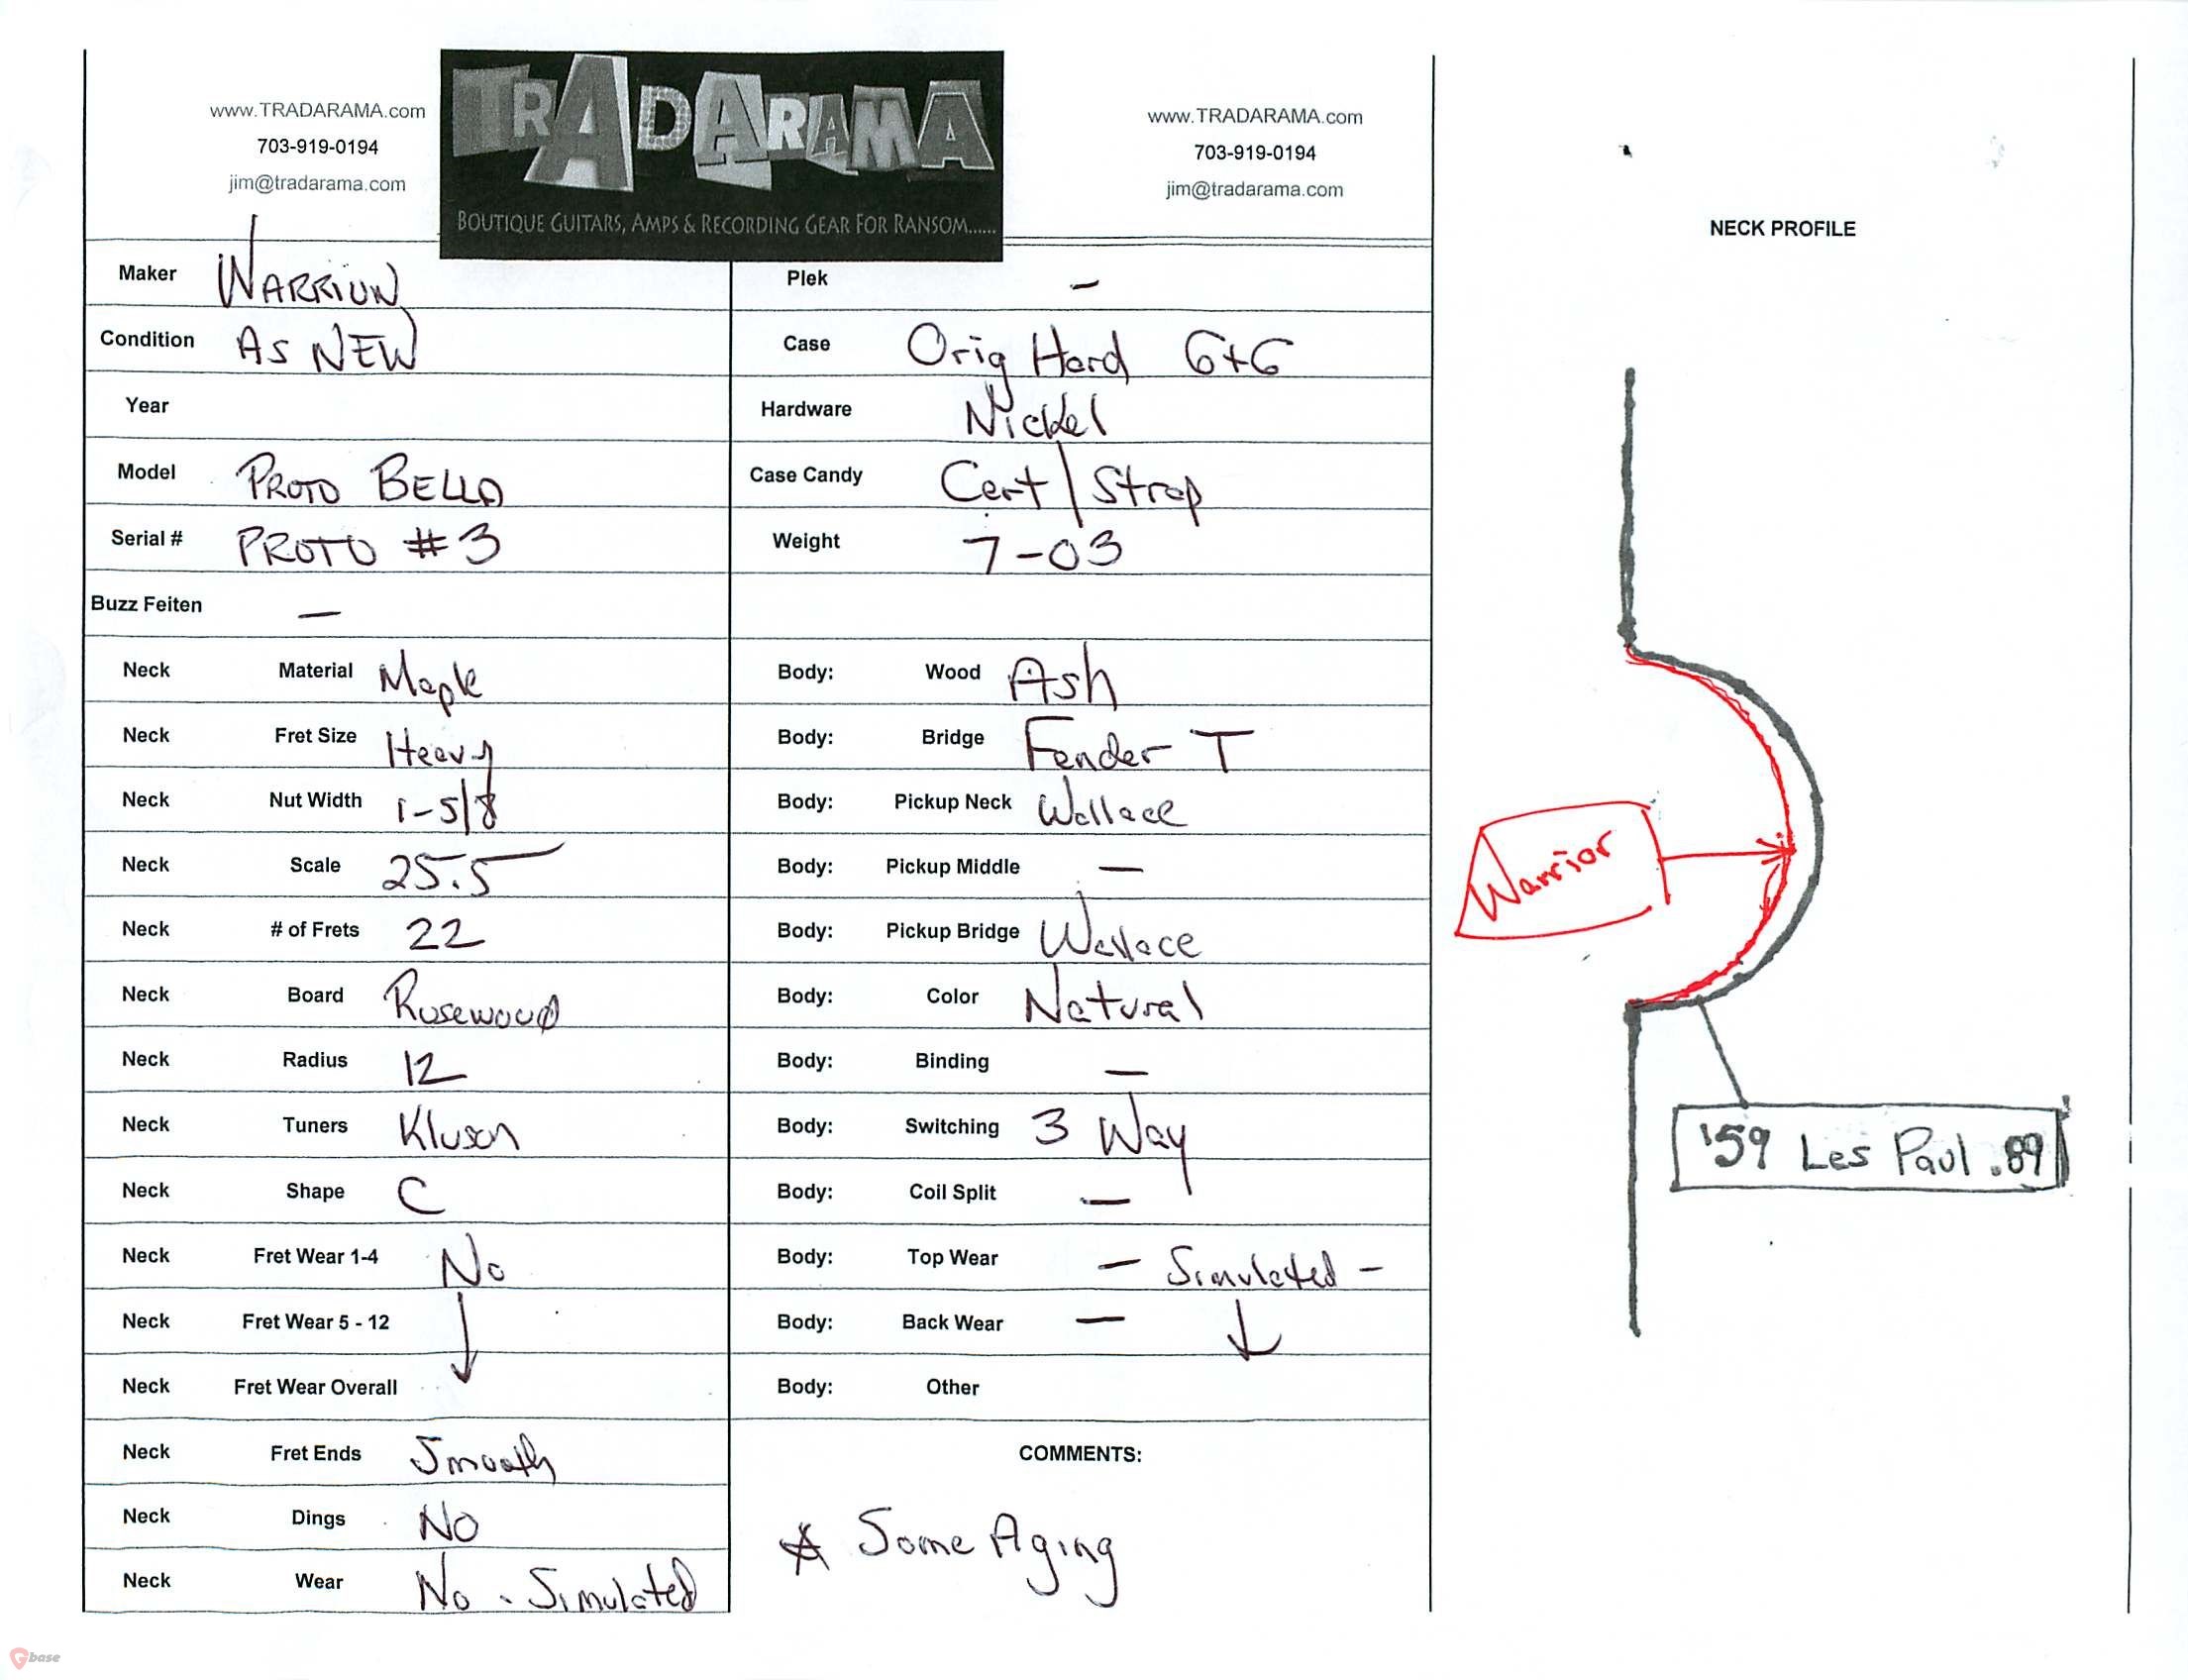 www.TRADARAMA.com
703-919-0194
jim@tradarama.com
TRADARAMA
BOUTIQUE GUITARS, AMPS & RECORDING GEAR FOR RANSOM......
www.TRADARAMA.com
703-919-0194
jim@tradarama.com
NECK PROFILE
Maker WARRIOR
Condition AS NEW
Year
Model PROTO BELLA
Serial # PROTO #3
Buzz Feiten —
Neck Material Maple
Neck Fret Size Heavy
Neck Nut Width 1-5/8
Neck Scale 25.5
Neck # of Frets 22
Neck Board Rosewood
Neck Radius 12
Neck Tuners Kluson
Neck Shape C
Neck Fret Wear 1-4 No
Neck Fret Wear 5 - 12
Neck Fret Wear Overall
Neck Fret Ends Smooth
Neck Dings No
Neck Wear No - Simulated
Plek —
Case Orig Hard G+G
Hardware Nickel
Case Candy Cert / Strap
Weight 7-03
Body: Wood Ash
Body: Bridge Fender T
Body: Pickup Neck Wallace
Body: Pickup Middle —
Body: Pickup Bridge Wallace
Body: Color Natural
Body: Binding —
Body: Switching 3 Way
Body: Coil Split —
Body: Top Wear — Simulated -
Body: Back Wear —
Body: Other
COMMENTS:
☆ Some Aging
Warrior
'59 Les Paul .89
Gbase